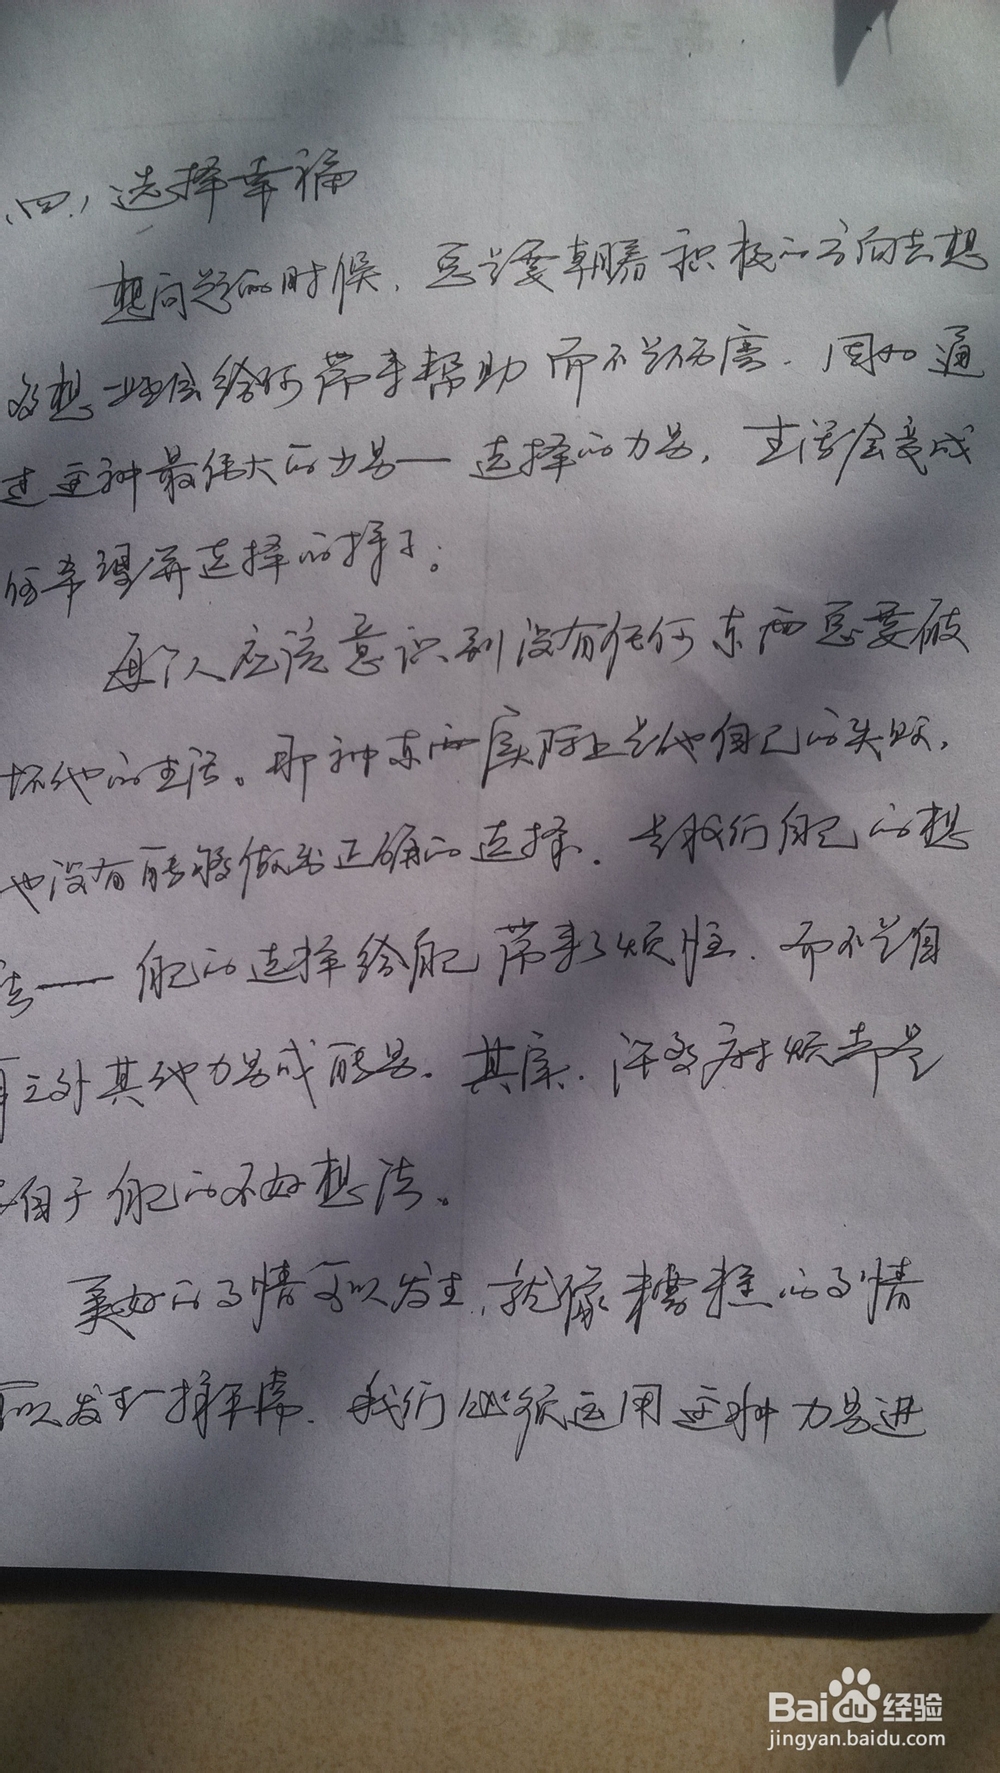 (四)选择幸福
想问题的时候，总是要朝着积极的方向去想
多想一些会给你带来帮助而不是伤害。因为通
过这种最伟大的力量——选择的力量，生活会变成
你希望并选择的样子。
每个人应该意识到没有任何东西总要破
坏他的生活。那种东西实际上是他自己的失败，
他没有能够做出正确的选择。是我们自己的想
法——自己的选择给自己带来了烦恼，而不是自
身之外其他力量或能量。其实，许多麻烦都是
自于自己的不好想法。
美好的事情可以发生，就像糟糕的事情
可以发生一样平常。我们必须运用这种力量进
Baidu经验
jingyan.baidu.com